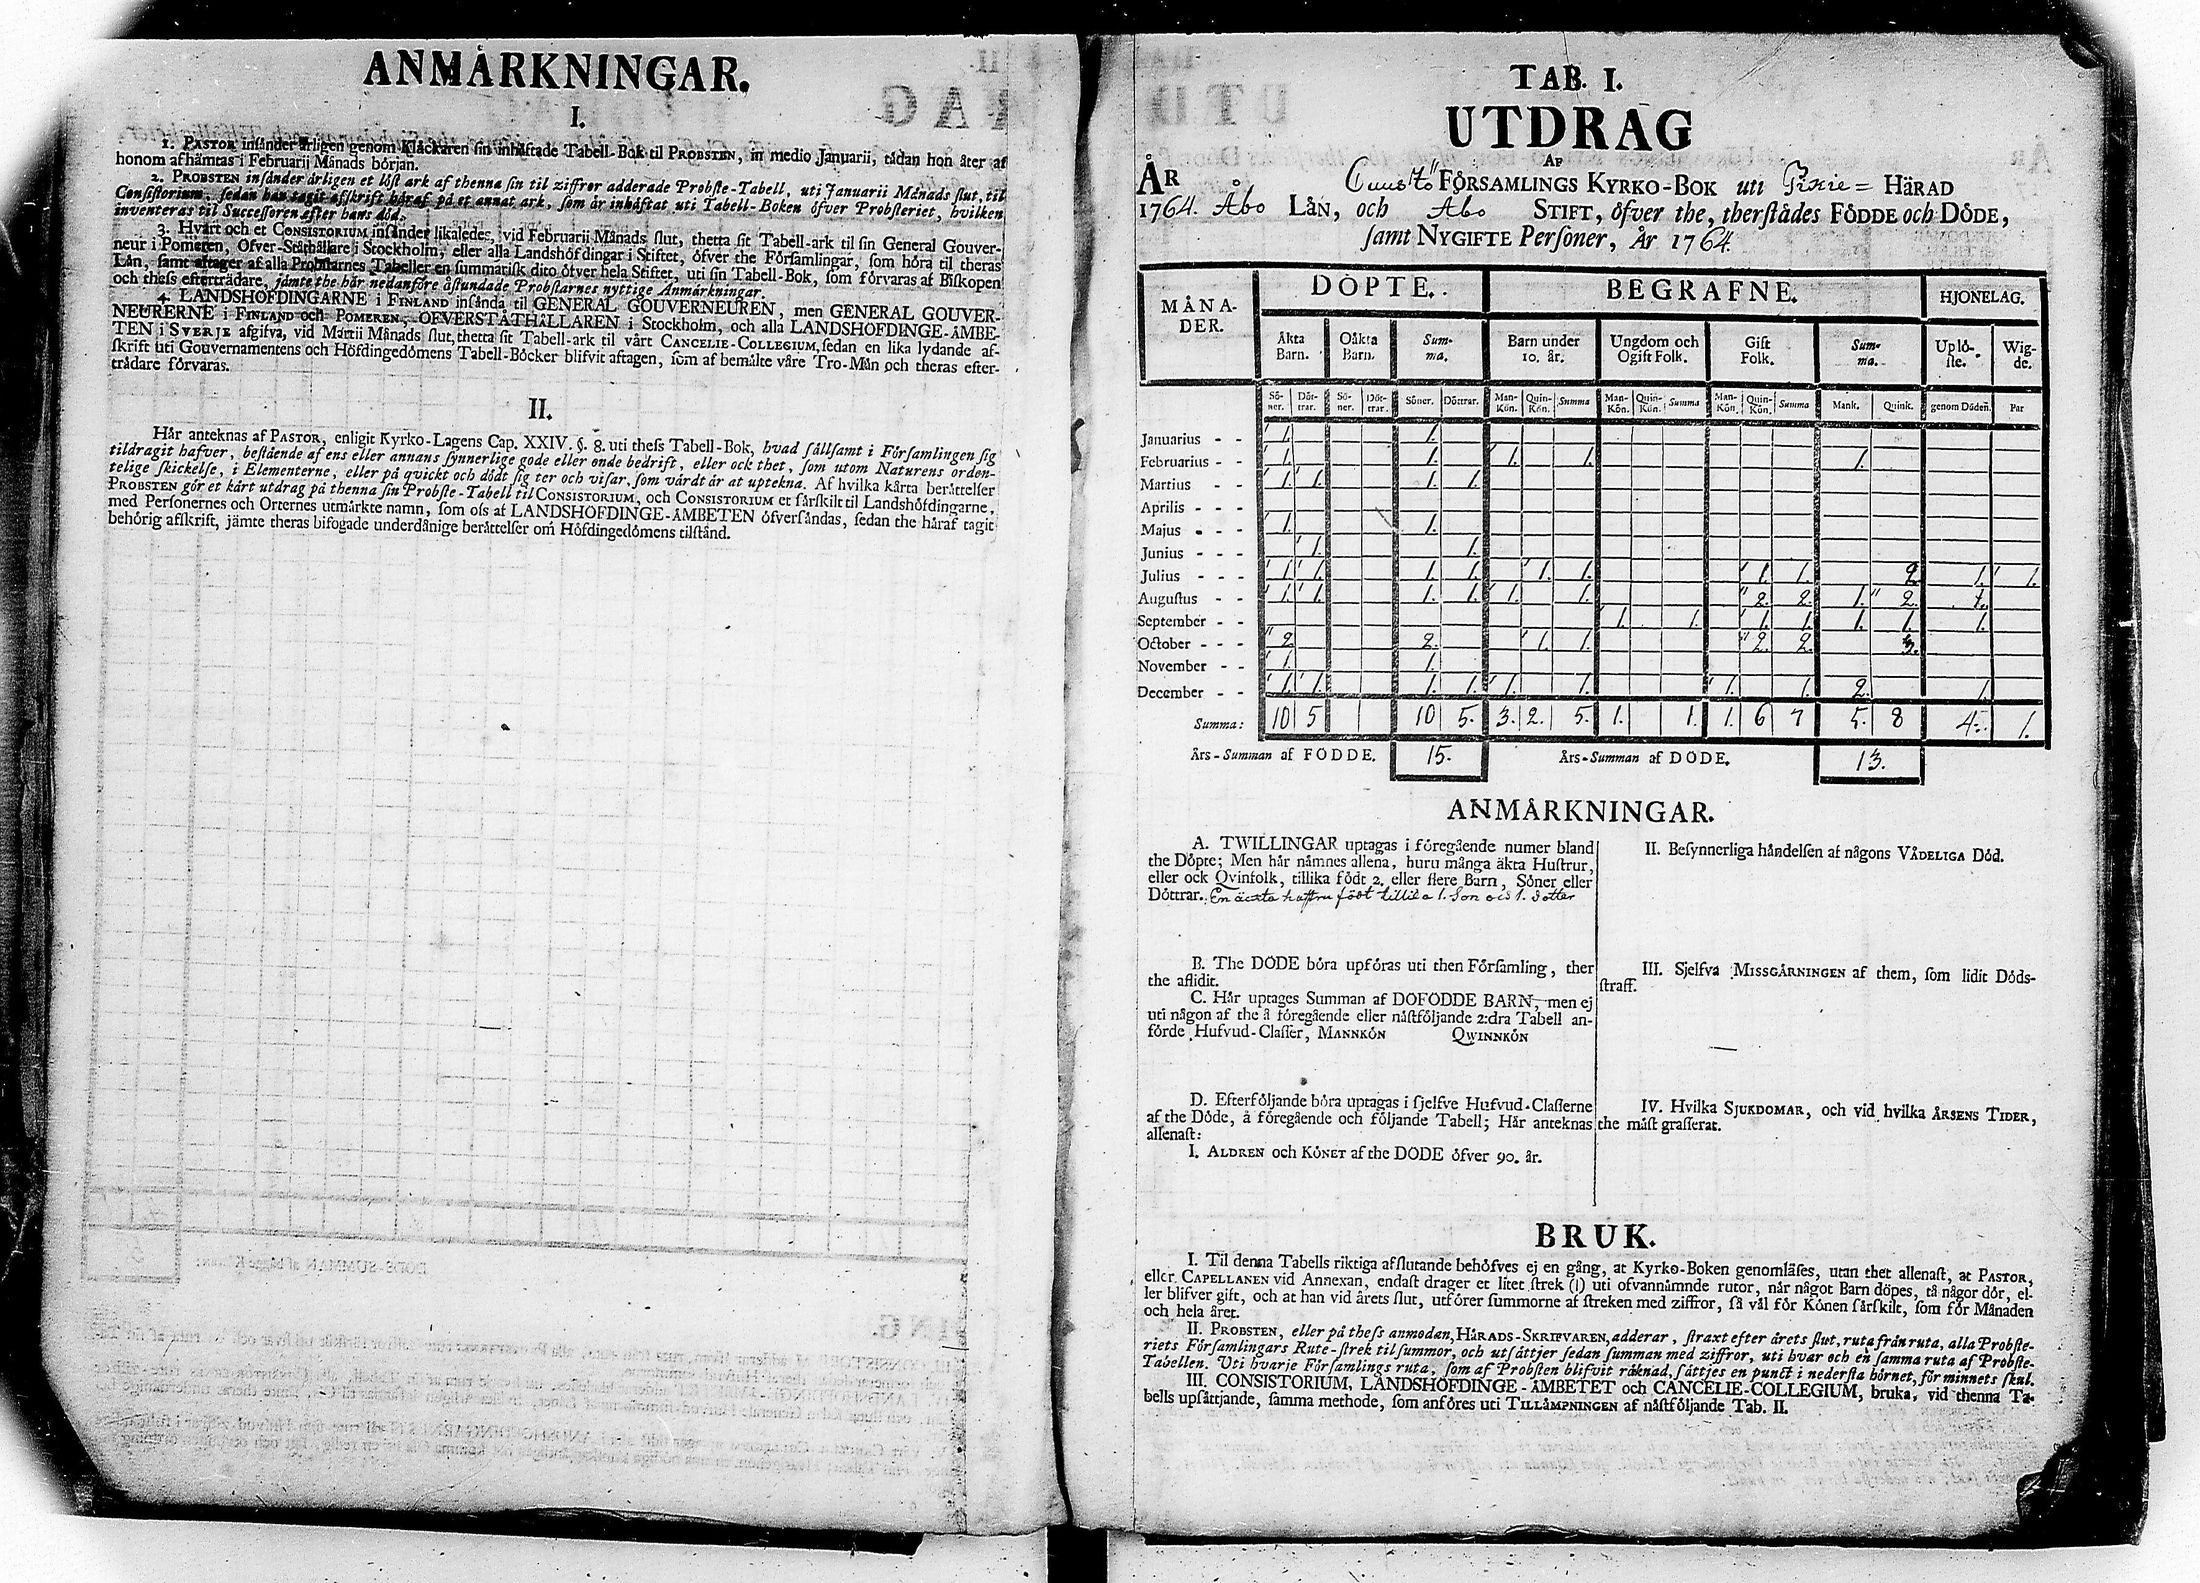 ANMÅRKNINGAR.
I.
1. PASTOR insånder årligen genom Klåckaren sin inhåftade Tabell-Bok til PROBSTEN, in medio Januarii, tådan hon åter af
honom afhåmtas i Februarii Månads början.
2. PROBSTEN insånder årligen et löst ark af thenna sin til ziffror adderade Probste-Tabell, uti Januarii Månads slut, til
Consistorium, sedan han tagit afskrift håraf på et annat ark, som år inhåftat uti Tabell-Boken öfver Probsteriet, hvilken
inventeras til Successoren efter hans död.
3. Hvart och et CONSISTORIUM insånder likaledes, vid Februarii Månads slut, thetta sit Tabell-ark til sin General Gouver-
neur i Pomeren, Öfver-Ståthållare i Stockholm, eller alla Landshöfdingar i Stiftet, öfver the Församlingar, som höra til theras
Lån, samt aftager af alla Probstarnes Tabeller en summarisk dito öfver hela Stiftet, uti sin Tabell-Bok, som förvaras af Biskopen
och thess efterträdare, jämte the hår nedanföre åstundade Probstarnes nyttige Anmårkningar.
4. LANDSHÖFDINGARNE i FINLAND insånda til GENERAL GOUVERNEUREN, men GENERAL GOUVER-
NEURERNE i FINLAND och POMEREN, OFVERSTÅTHÅLLAREN i Stockholm, och alla LANDSHÖFDINGE-ÅMBE-
TEN i SVERJE afgifva, vid Martii Månads slut, thetta sit Tabell-ark til vårt CANCELIE-COLLEGIUM, sedan en lika lydande af-
skrift uti Gouvernamentens och Höfdingedömens Tabell-Böcker blifvit aftagen, som af bemålte våre Tro-Mån och theras efter-
trådare förvaras.
II.
Hår anteknas af PASTOR, enligit Kyrko-Lagens Cap. XXIV. §. 8. uti thess Tabell-Bok, hvad sållsamt i Församlingen sig
tildragit hafver, bestående af ens eller annans synnerlige gode eller onde bedrift, eller ock thet, som utom Naturens orden-
telige skickelse, i Elementerne, eller på qvickt och dödt sig ter och visar, som värdt är at uptekna. Af hvilka kårta beråttelser
PROBSTEN gör et kårt utdrag på thenna sin Probste-Tabell til CONSISTORIUM, och CONSISTORIUM et sårskilt til Landshöfdingarne,
med Personernes och Orternes utmårkte namn, som oss af LANDSHÖFDINGE-ÅMBETEN öfversåndas, sedan the håraf tagit
behörig afskrift, jämte theras bifogade underdånige beråttelser om Höfdingedömens tilstånd.
TAB. I.
UTDRAG
AF
ÅR Cuustö FÖRSAMLINGS KYRKO-BOK uti Pikie= HÅRAD
1764. Åbo LÅN, och Åbo STIFT, öfver the, therstådes FÖDDE och DÖDE,
samt NYGIFTE Personer, År 1764.
MÅNA-DER. DÖPTE. BEGRAFNE. HJONELAG.
Åkta Barn. Oåkta Barn. Sum-ma. Barn under 10. år. Ungdom och Ogift Folk. Gift Folk. Sum-ma. Uplö-ste. Wig-de.
Sö-ner. Döt-trar. Sö-ner. Döt-trar. Söner. Döttrar. Man-Kön. Quin-Kön. Summa Man-Kön. Quin-Kön. Summa Man-Kön. Quin-Kön. Summa Mank. Quink. genom Döden. Par
Januarius - - 1. 1.
Februarius - - 1. 1. 1. 1. 1.
Martius - - - 1. 1. 1. 1.
Aprilis - - -
Majus - - - 1. 1.
Junius - - - 1. 1.
Julius - - - 1. 1. 1. 1. 1. 1. 1. 1. 2. 1. 1.
Augustus - - 1. 1. 1. 1. 1. 1. 2. 2. 1. 2. 1.
September - - 1. 1. 1. 1. 1. 1. 1.
October - - - 2. 2. 1. 1. 2. 2. 3.
November - - 1. 1.
December - - 1. 1. 1. 1. 1. 1. 1. 1. 2. 1.
Summa: 10 5 10 5. 3. 2. 5. 1. 1. 1. 6 7 5. 8 4. 1.
Års-Summan af FÖDDE. 15. Års-Summan af DÖDE. 13.
ANMÅRKNINGAR.
A. TWILLINGAR uptagas i föregående numer bland
the Döpte; Men hår nåmnes allena, huru många åkta Hustrur,
eller ock Qvinfolk, tillika födt 2. eller flere Barn, Söner eller
Döttrar. En ächta hustru födt tillika 1. Son och 1. dotter
B. The DÖDE böra upföras uti then Församling, ther
the aflidit.
C. Hår uptages Summan af DÖFÖDDE BARN, men ej
uti någon af the å föregående eller nåstföljande 2:dra Tabell an-
förde Hufvud-Classer, MANNKÖN QWINNKÖN
D. Efterföljande böra uptagas i sjelfve Hufvud-Classerne
af the Döde, å föregående och följande Tabell; Hår anteknas
allenast:
I. ALDREN och KÖNET af the DÖDE öfver 90. år.
II. Besynnerliga håndelsen af någons VÅDELIGA Död.
III. Sjelfva MISSGÅRNINGEN af them, som lidit Döds-
straff.
IV. Hvilka SJUKDOMAR, och vid hvilka ÅRSENS TIDER,
the måst grasserat.
BRUK.
I. Til denna Tabells riktiga afslutande behöfves ej en gång, at Kyrko-Boken genomlåses, utan thet allenast, at PASTOR,
eller CAPELLANEN vid Annexan, endast drager et litet strek (1) uti ofvannåmnde rutor, når något Barn döpes, tå någor dör, el-
ler blifver gift, och at han vid årets slut, utförer summorne af streken med ziffror, så vål för Könen sårskilt, som för Månaden
och hela året.
II. PROBSTEN, eller på thess anmodan, HÅRADS-SKRIFVAREN, adderar, straxt efter årets slut, ruta från ruta, alla Probste-
riets Församlingars Rute-strek til summor, och utsåttjer sedan summan med ziffror, uti hvar och en samma ruta af Probste-
Tabellen. Uti hvarje Församlings ruta, som af Probsten blifvit råknad, såttjes en punct i nedersta hörnet, för minnets skul.
III. CONSISTORIUM, LANDSHÖFDINGE-ÅMBETET och CANCELIE-COLLEGIUM, bruka, vid thenna Ta-
bells upsåttjande, samma methode, som anföres uti TILLÅMPNINGEN af nåstföljande Tab. II.